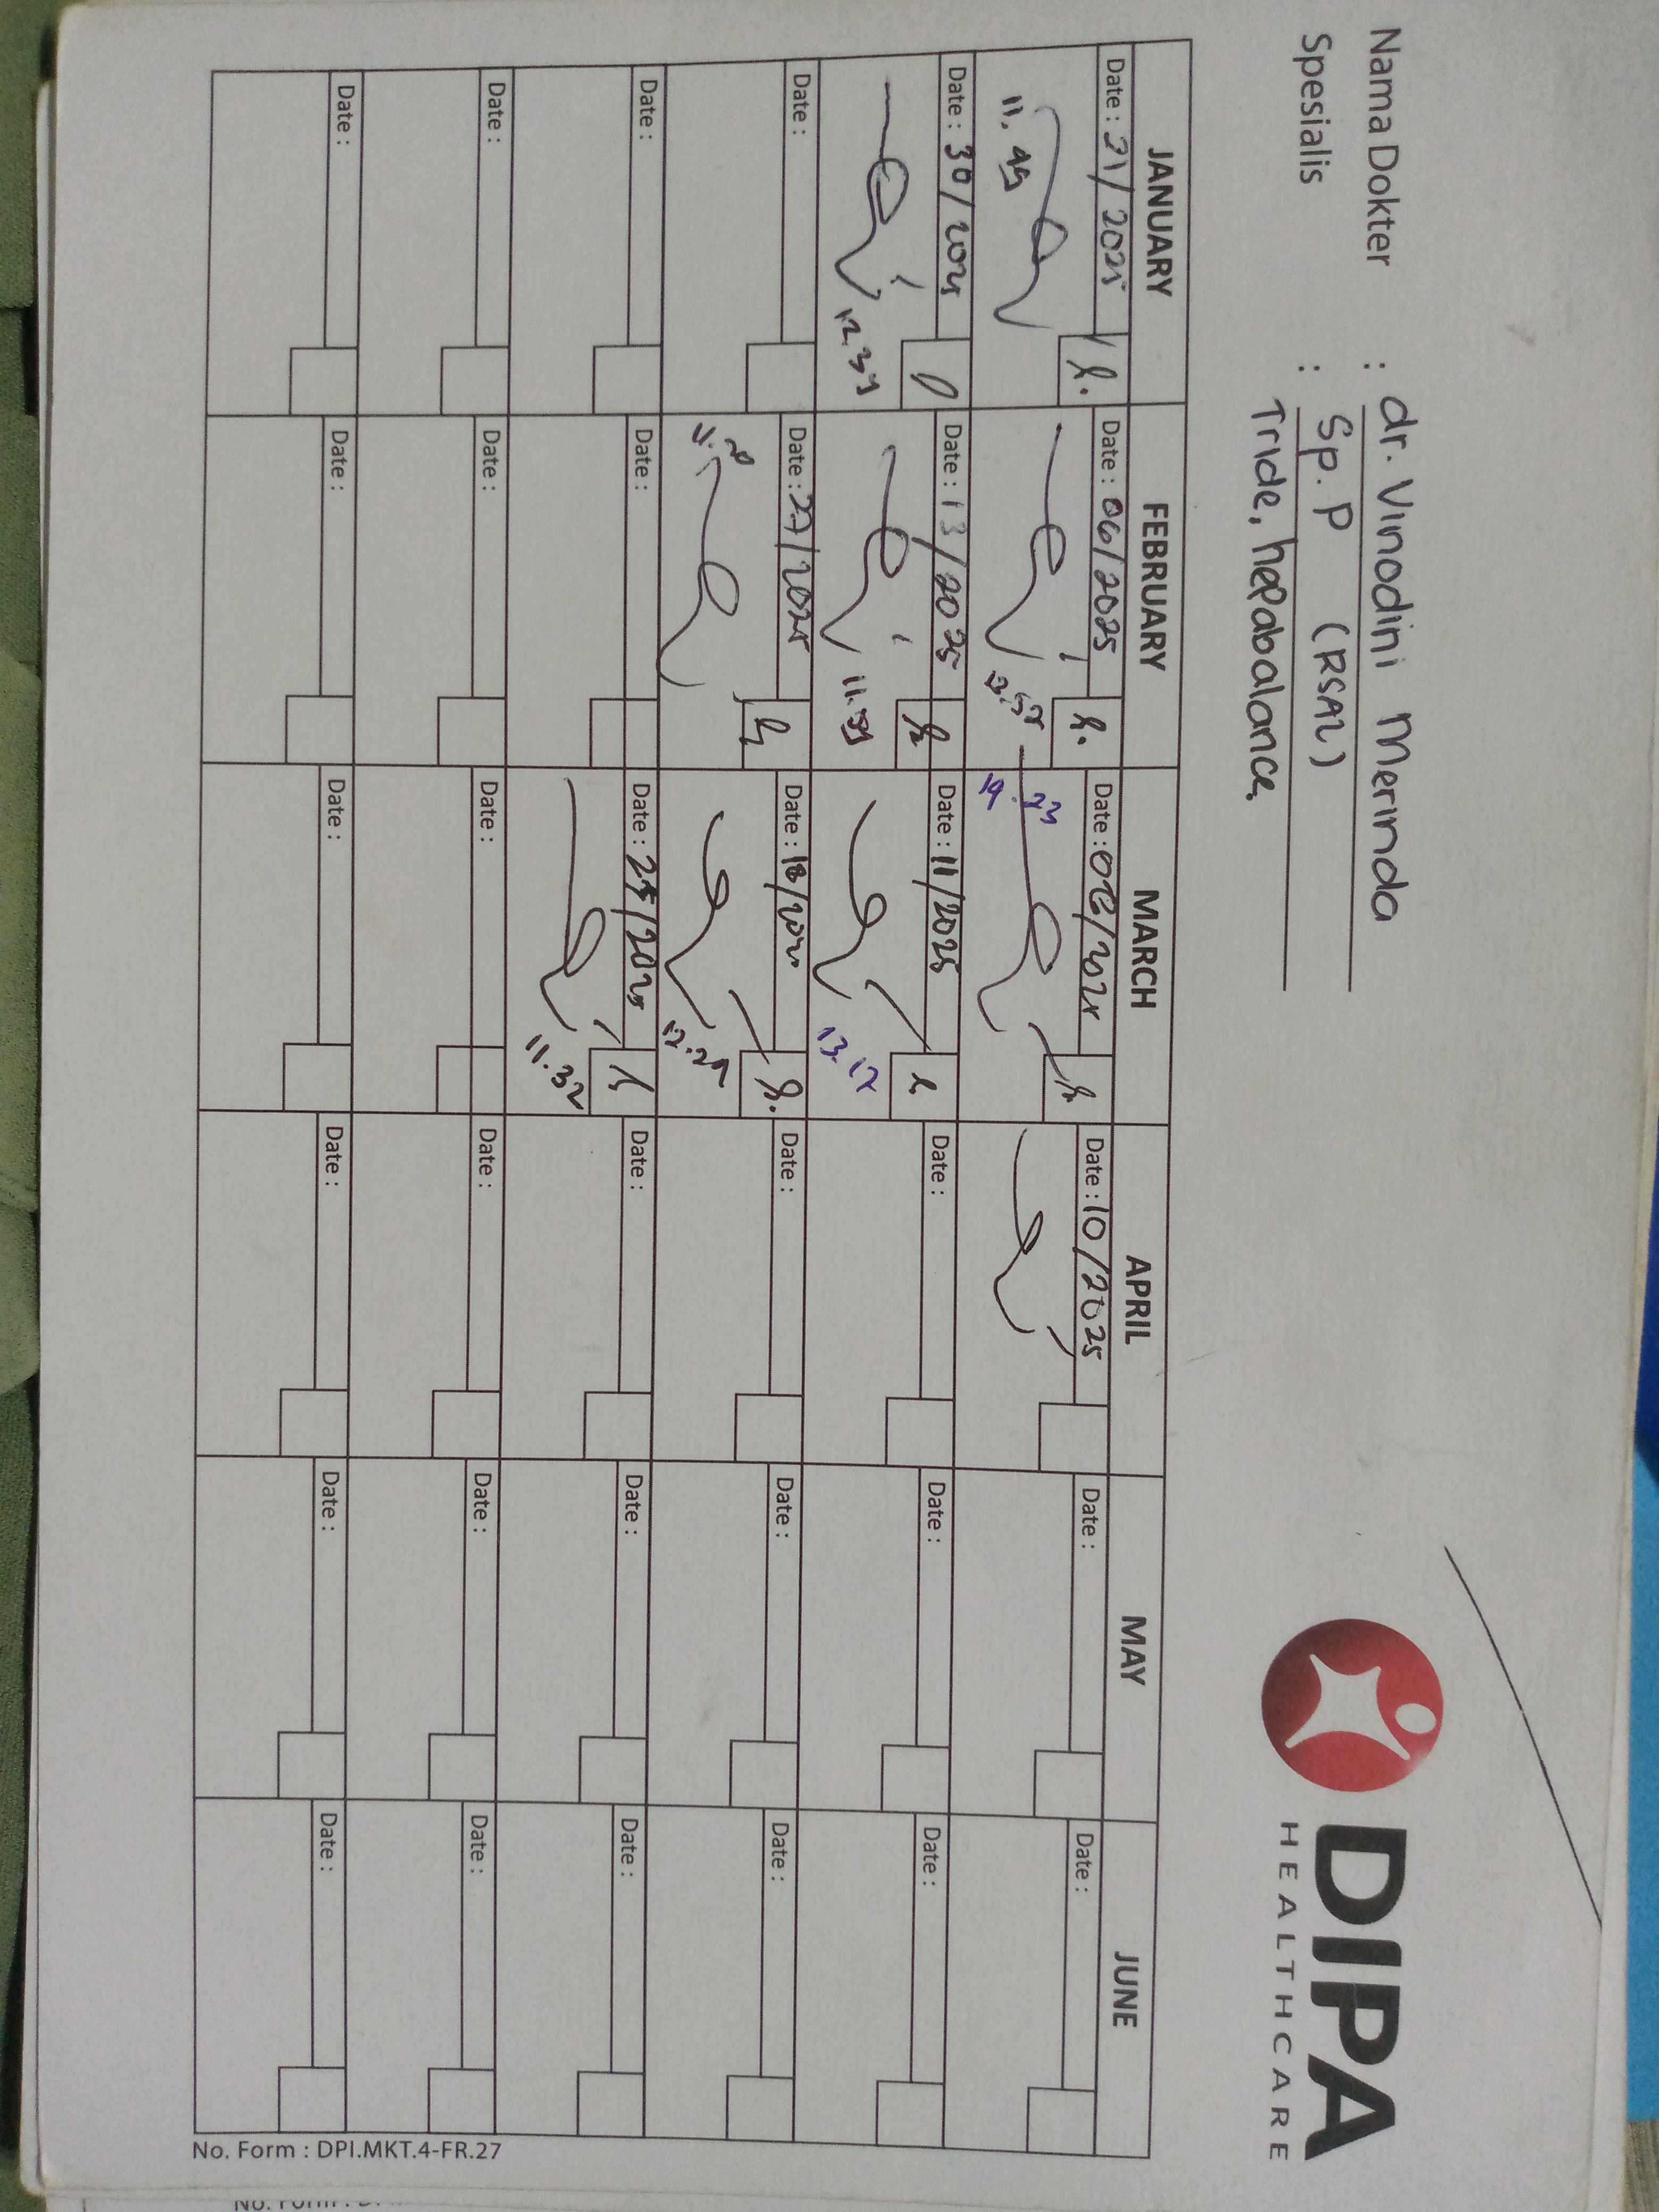 Nama Dokter : dr. Vinodini Merinda
Spesialis : Sp. P (RSAL)
Tride, hepabalance.
DIPA
HEALTHCARE
JANUARY FEBRUARY MARCH APRIL MAY JUNE
Date : 21/2025 Date : 06/2025 Date : 2025 Date : 10/2025 Date : Date :
11.45 14.23
Date : 30/2025 Date : 13/2025 Date : 11/2025 Date : Date : Date :
12.34 11.39 13.12
Date : Date : 27/2025 Date : 18/ Date : Date : Date :
Date : Date : Date : 25/2025 Date : Date : Date :
11.32
Date : Date : Date : Date : Date : Date :
Date : Date : Date : Date : Date : Date :
No. Form : DPI.MKT.4-FR.27